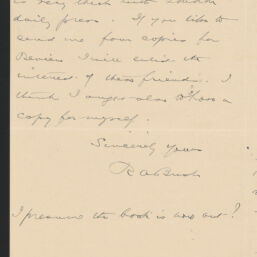 is very thick with London
daily press. If you like to
send me four copies for
Review I will enlist the
interest of these friends. I
think I ought also to have a
copy for myself.
Sincerely yours
I presume the book is now out?